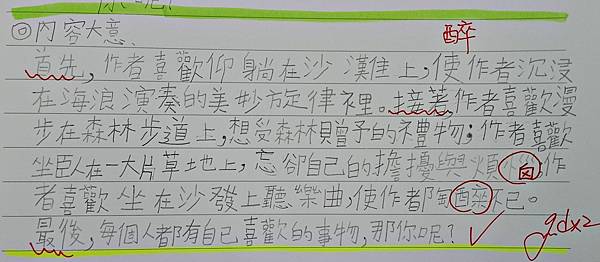 你呢?
◎內容大意:
醉
首先,作者喜歡仰躺在沙灘上,使作者沉浸
在海浪演奏的美妙旋律裡。接著,作者喜歡漫
步在森林步道上,想受森林贈予的禮物;作者喜歡
坐臥在一大片草地上,忘卻自己的擔擾與煩 作
者喜歡坐在沙發上聽樂曲,使作者都 醉不已。
最後,每個人都有自己喜歡的事物,那你呢?
gdx2